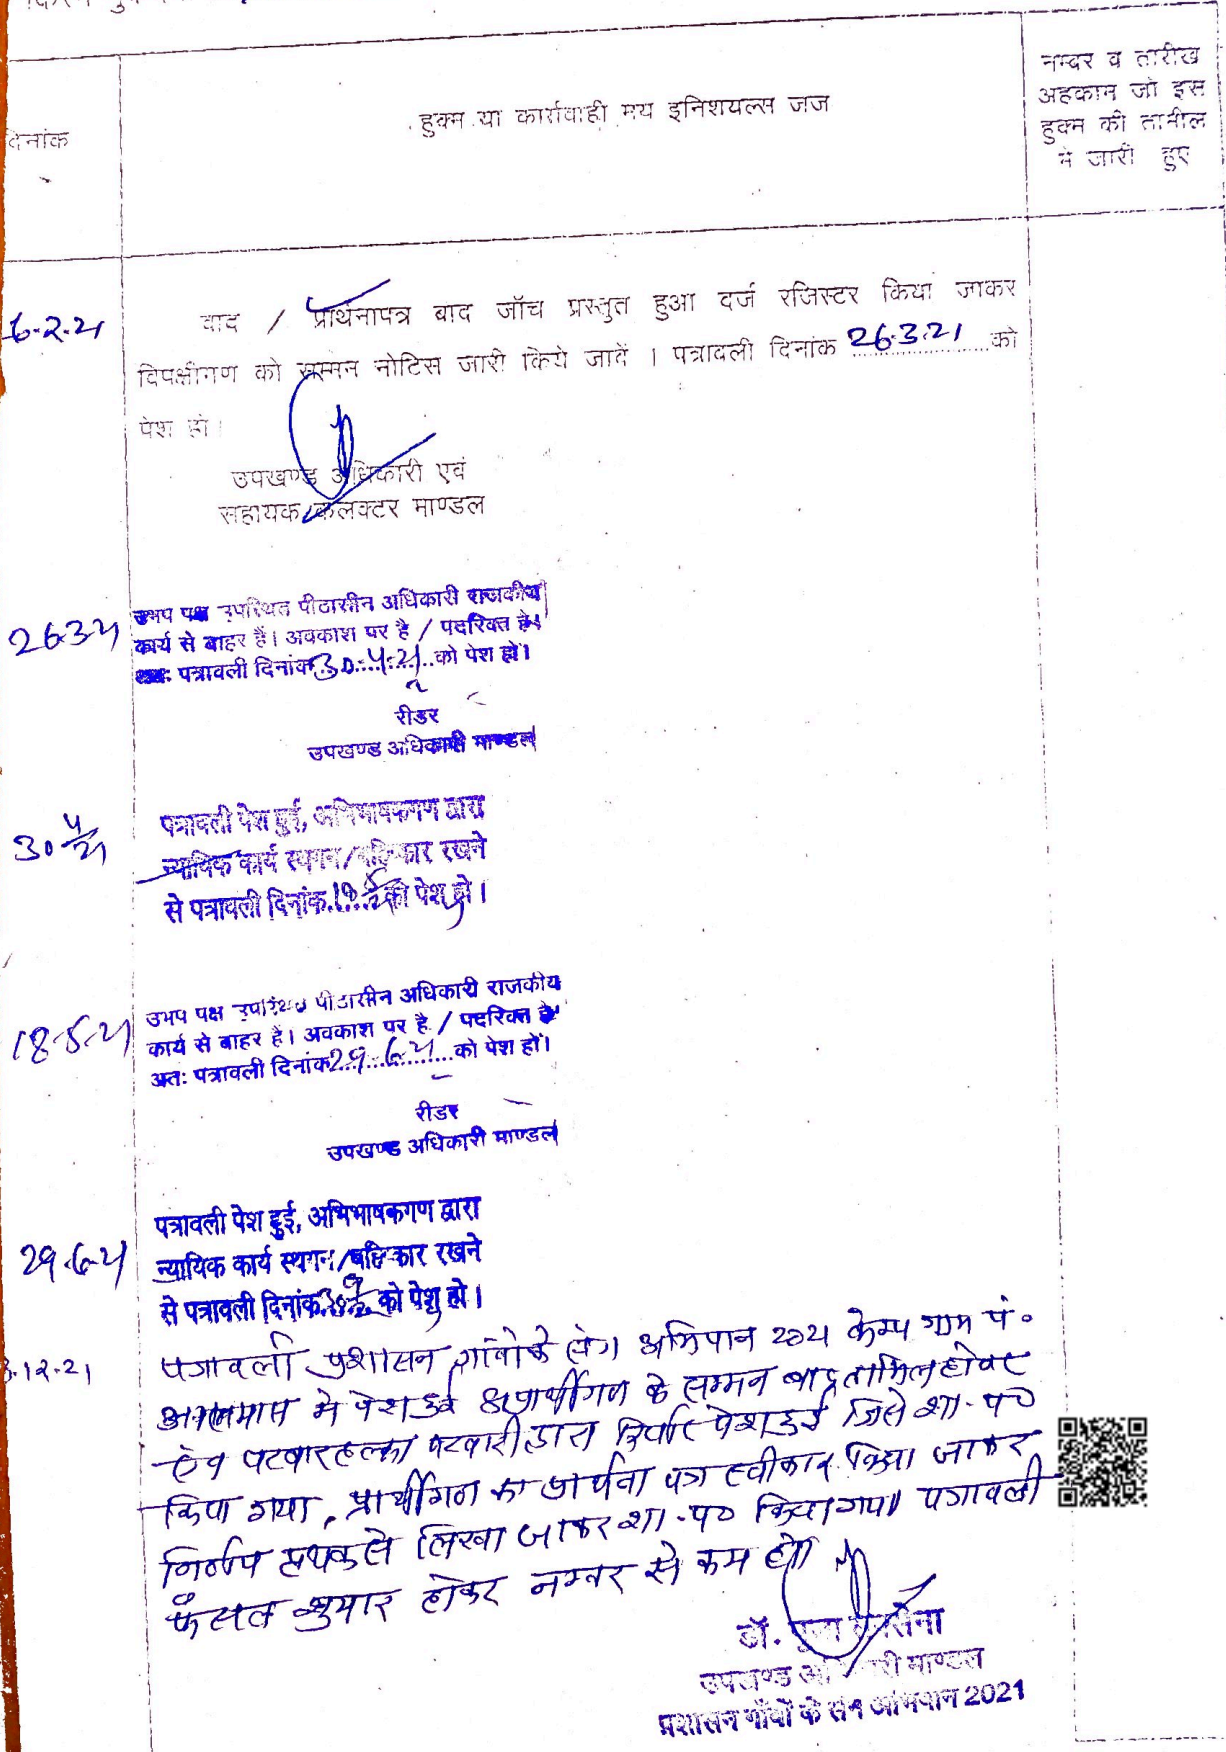 दिनांक
हुक्म या कार्यवाही मय इनिशयल्स जज
नम्बर व तारीख
अहकाम जो इस
हुक्म की तामील
मे जारी हुए
6-2-21
वाद / प्रार्थनापत्र बाद जॉच प्रस्तुत हुआ दर्ज रजिस्टर किया जाकर
विपक्षीगण को सम्मन नोटिस जारी किये जावें । पत्रावली दिनांक 26.3.21 को
पेश हो।
उपखण्ड अधिकारी एवं
सहायक कलक्टर माण्डल
26-3-21
उभय पक्ष उपस्थित पीठासीन अधिकारी राजकीय
कार्य से बाहर हैं। अवकाश पर है / पदरिक्त है।
अतः पत्रावली दिनांक 30.4.21 को पेश हो।
रीडर
उपखण्ड अधिकारी माण्डल
30 4/21
पत्रावली पेश हुई, अभिभाषकगण द्वारा
न्यायिक कार्य स्थगन/बहिष्कार रखने
से पत्रावली दिनांक को पेश हो।
18-5-21
उभय पक्ष उपस्थित पीठासीन अधिकारी राजकीय
कार्य से बाहर हैं। अवकाश पर है / पदरिक्त है
अतः पत्रावली दिनांक 29.6.21 को पेश हों।
रीडर
उपखण्ड अधिकारी माण्डल
29-6-21
पत्रावली पेश हुई, अभिभाषकगण द्वारा
न्यायिक कार्य स्थगन/बहिष्कार रखने
से पत्रावली दिनांक को पेश हो।
12-21
पत्रावली प्रशासन गांवो के संग अभियान 2021 केम्प ग्राम पं.
मे पेश हुई के सम्मन बाद तामिल होकर
एवं पटवार हल्का पटवारी द्वारा रिपोर्ट पेश हुई जिसे शा-प०
किया गया, प्रार्थीगण का प्रार्थना पत्र स्वीकार किया जाकर
निर्णय पृथक से लिखा जाकर शा-प० किया गया पत्रावली
फैसल शुमार होकर नम्बर से कम हो
डॉ. पूजा सक्सेना
उपखण्ड अधिकारी माण्डल
प्रशासन गाँवों के संग अभियान 2021